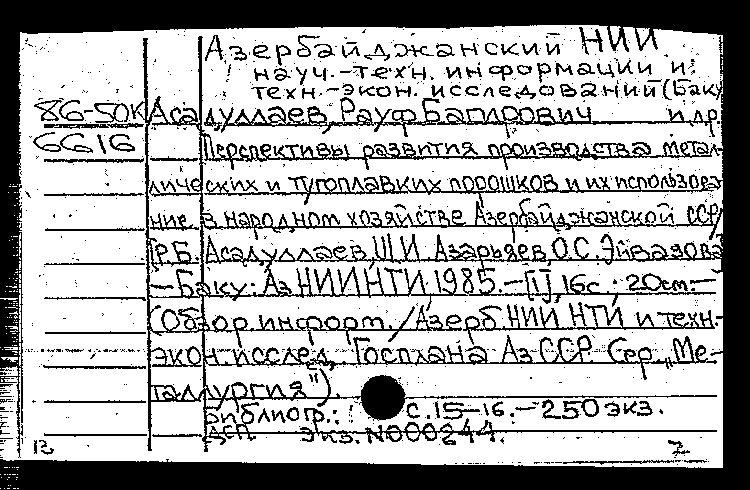 Азербайджанский НИИ
науч.-техн. информации и
техн.-экон. исследований (Баку
86-50К Асадуллаев, Рауф Багирович и др.
6616 Перспективы развития производства метал-
лических и тугоплавких порошков и их использова-
ние в народном хозяйстве Азербайджанской ССР/
[Р.Б. Асадуллаев, Ш.И. Азарьяев, О.С. Эйвазова
— Баку: АзНИИНТИ, 1985. — [1], 16с.; 20см. —
(Обзор. информ. / Азерб. НИИ НТИ и техн.-
экон. исслед. Госплана АзССР. Сер. „Ме-
таллургия").
Библиогр.: с. 15-16. — 250 экз.
ДСП Экз. N000244.